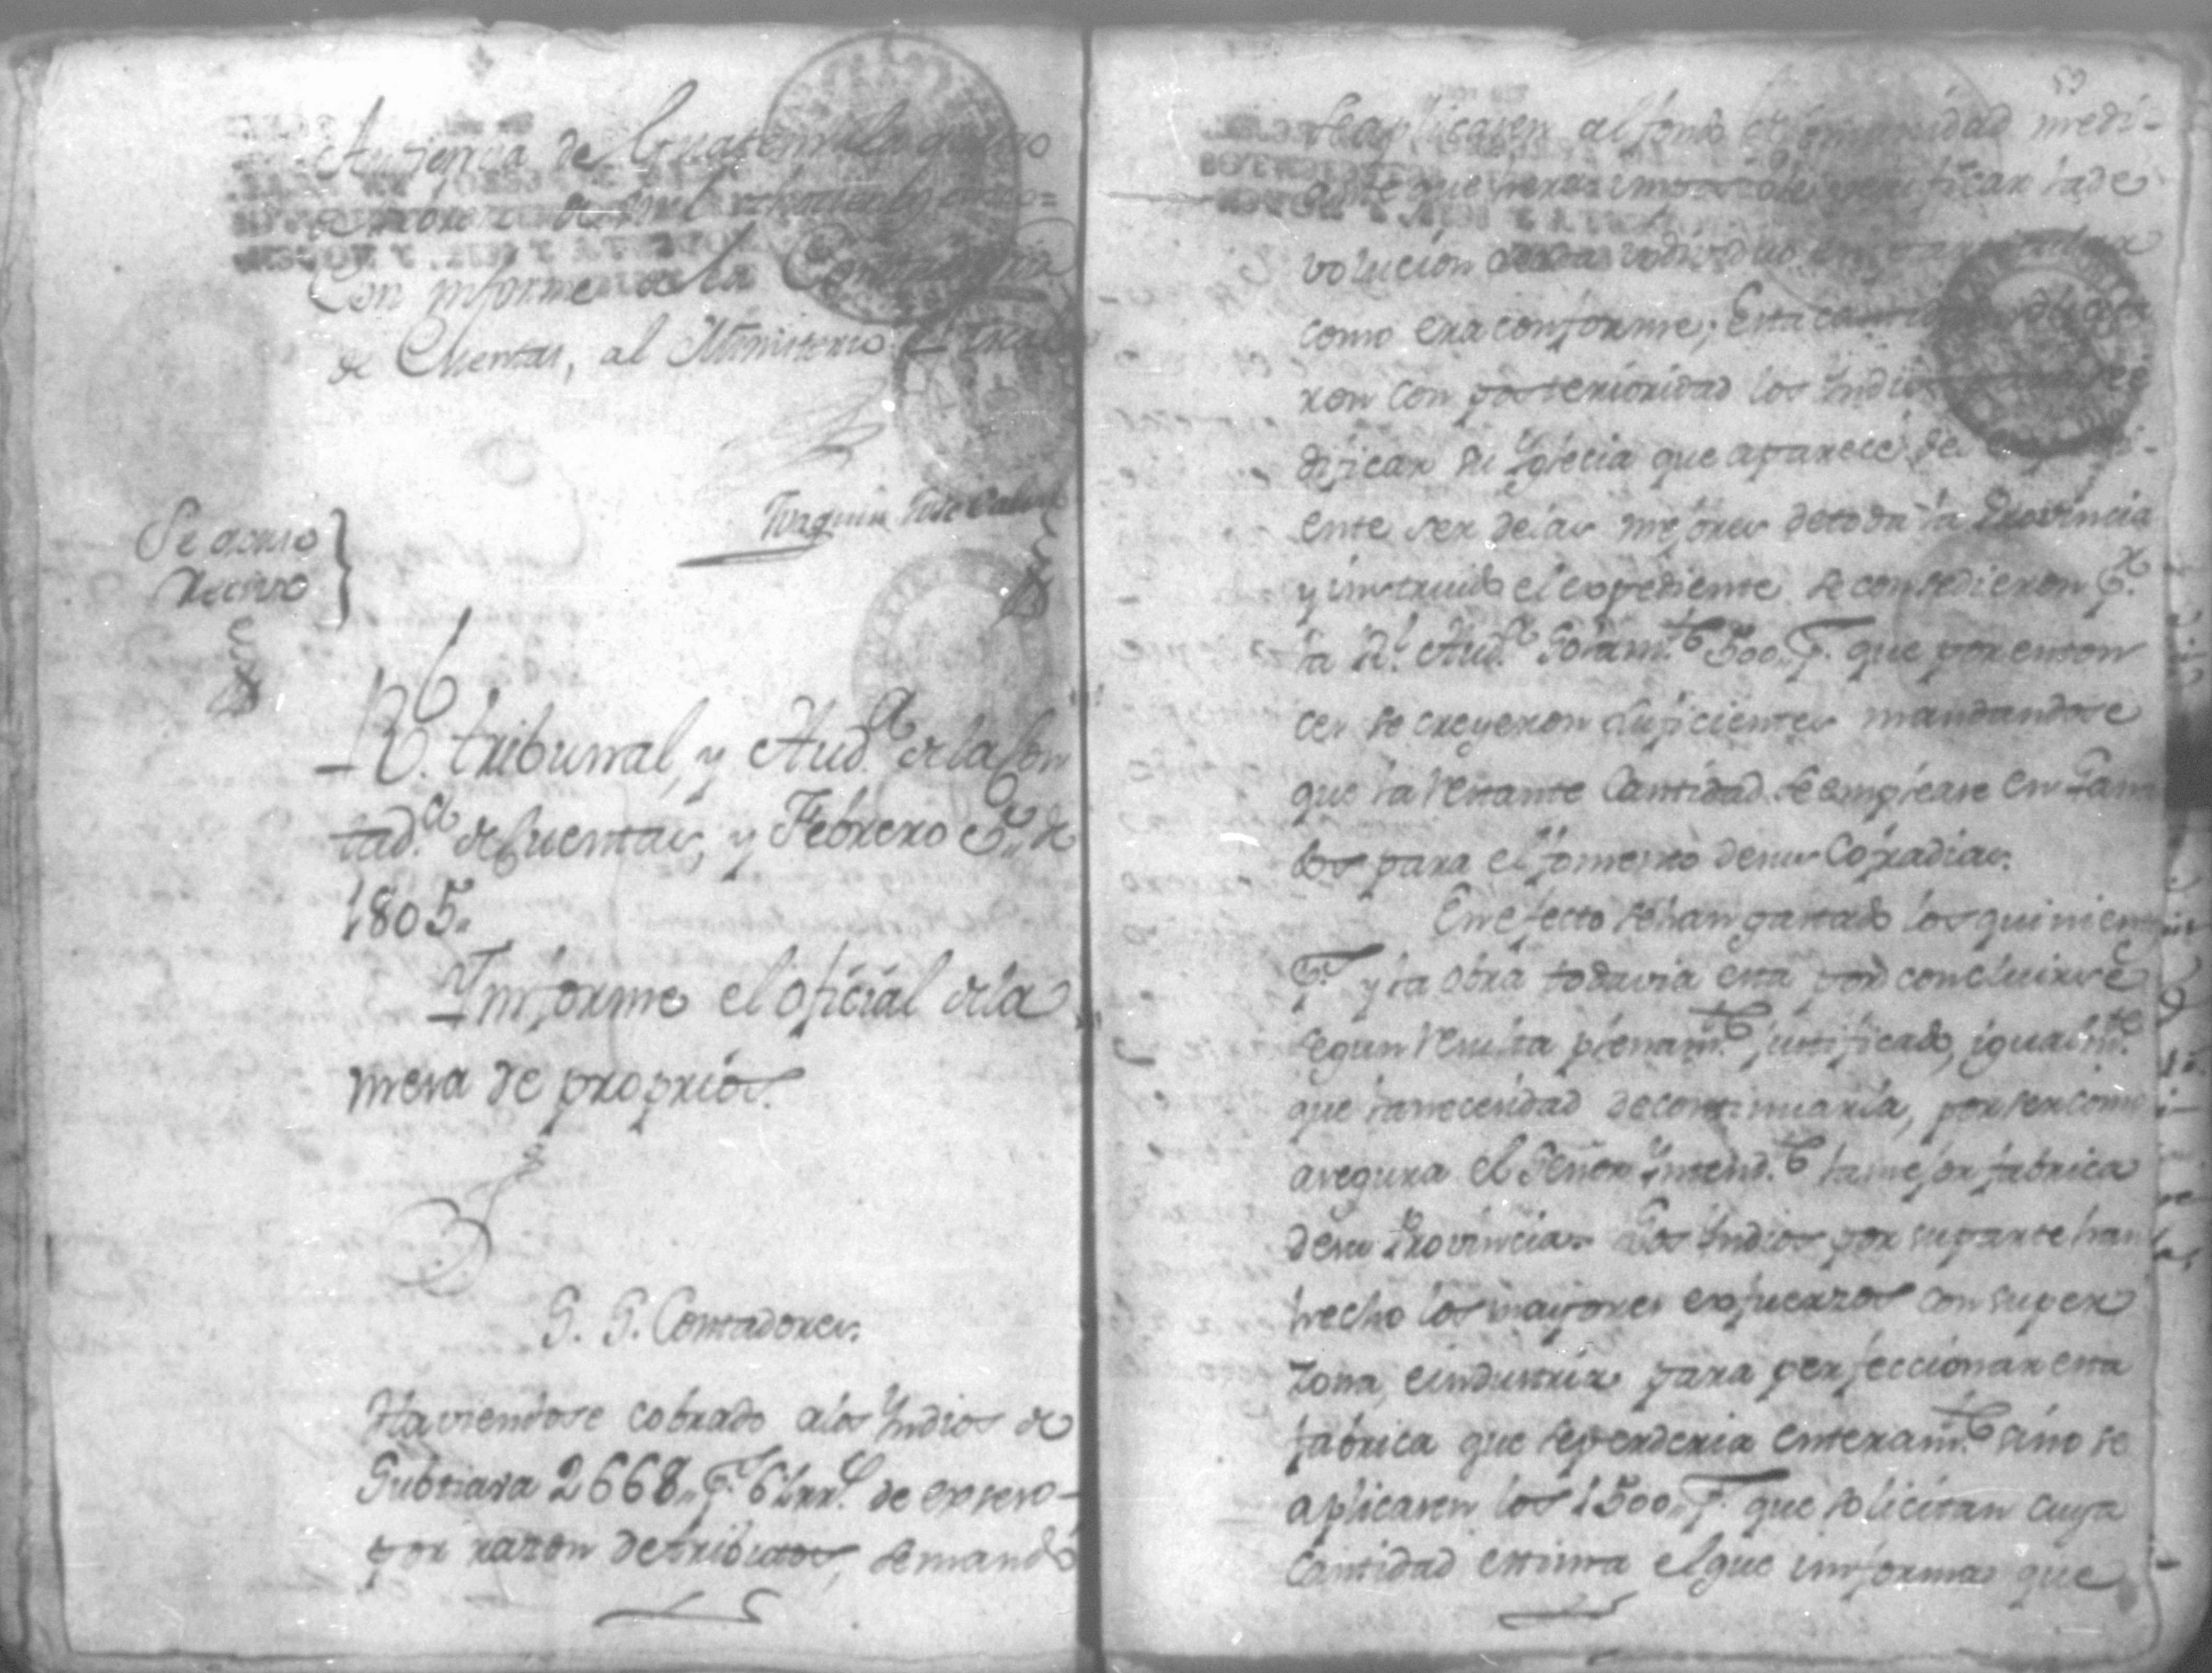 Audiencia de Guatemala quatro
de enero de mil ochocientos cinco=
Con informe de la Contaduria
de Cuentas, al Ministerio
Joaquin José
Se acusó
Recivo
Rl. tribunal, y Aud.a de la Con
tad.a de Cuentas, y Febrero 5,, de
1805.
Ynforme el oficial de la
mesa de proprios.
S. S. Contadores.
Haviendose cobrado alos Yndios de
Subtiava 2668,, p.s 6 rr.s de exseso
por razon de tributos, se mandó
59
se aplicasen al fondo de Comunidad medi-
ante que verificar la de
volucion a cada individuo en
como era conforme; Esta
ron con posterioridad los Yndios
dificar su Yglecia que aparece del
ente ser delas mejores detoda la Provincia
y instruido el expediente se consedieron p.r
la Rl. Aud.a Solam.te 500,, p.s que por enton
ces se creyeron suficientes mandandose
que la restante Cantidad se emplease en Gana
dos para el fomento desus Cofradias.
En efecto se han gastado los quinientos
p.s y la obra todavia esta por concluirse
segun resulta plenam.te justificado, igualm.te
que la necesidad decontinuarla, por ser como
asegura el Señor Yntend.te la mejor fabrica
desu Provincia. Los Yndios por su parte han
hecho los mayores esfuerzos con su per
zona, e industria para perfeccionar esta
fabrica que se perderia enteram.te sino se
aplicasen los 1500,, p.s que solicitan cuya
Cantidad estima el que informa que